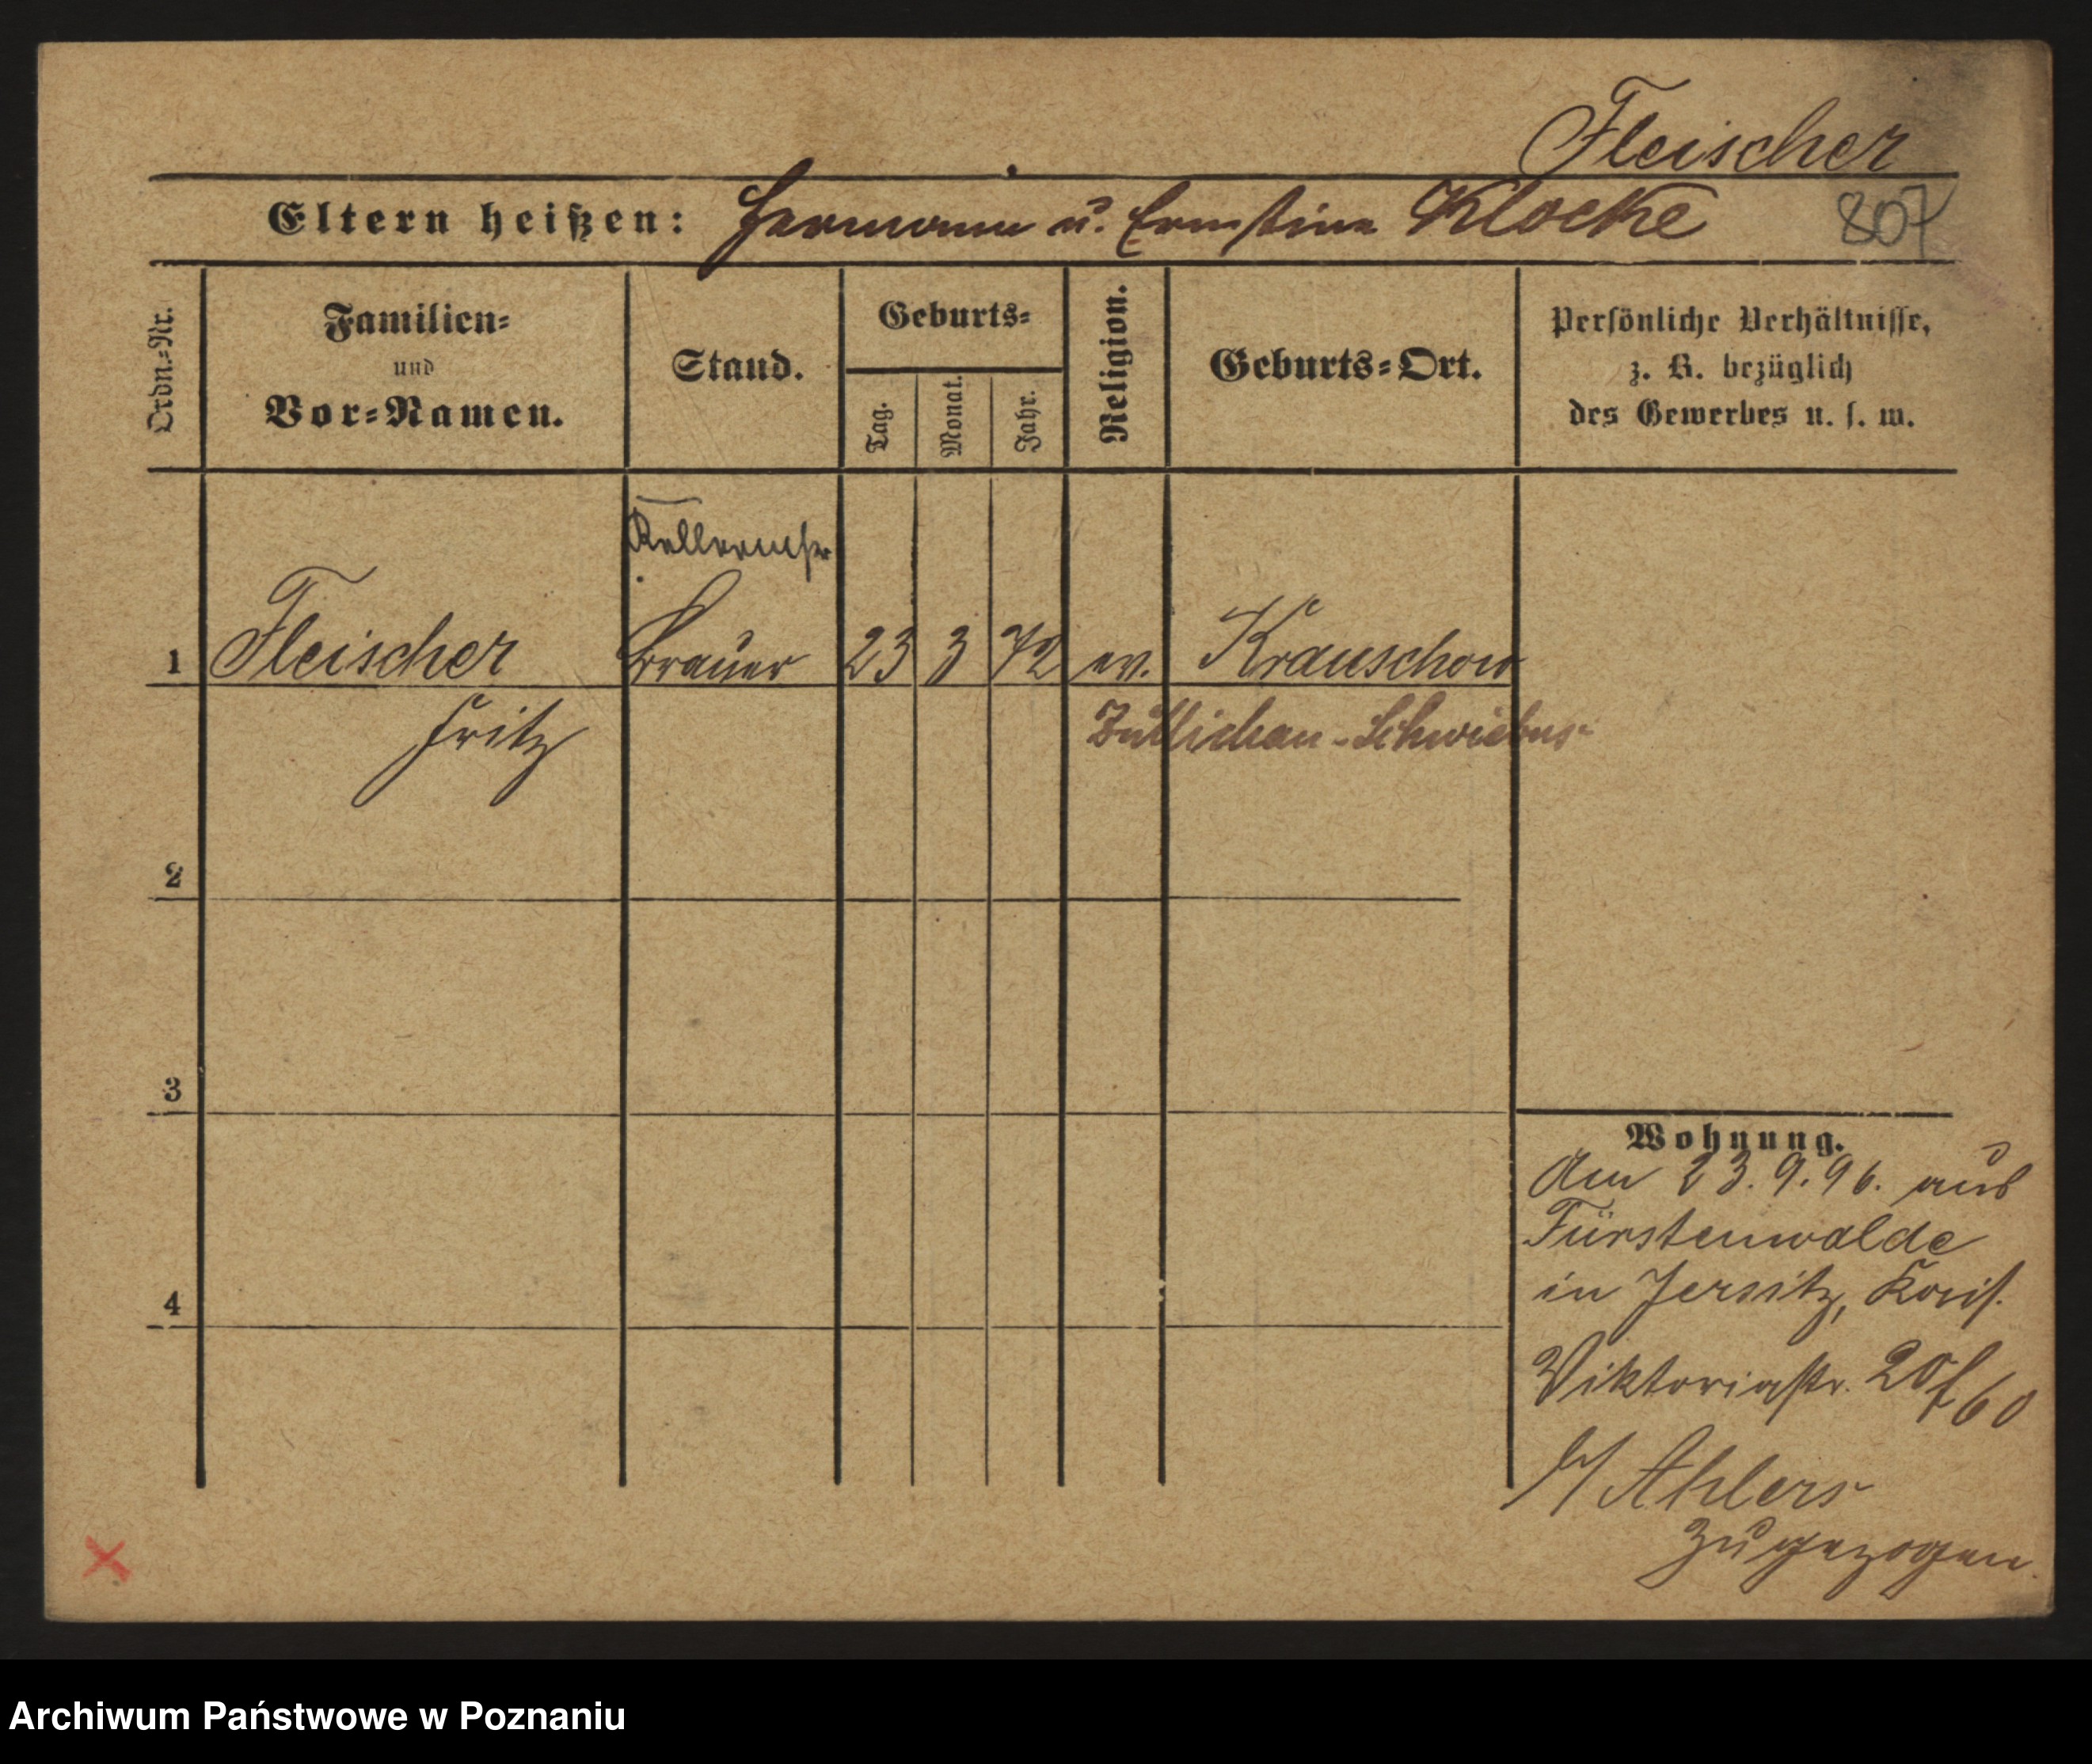 Fleischer
Eltern heißen: Hermann u. Ernstine Klocke 807
Ordn.=Nr.
Familien=
und
Vor=Namen.
Stand.
Geburts=
Tag.
Monat.
Jahr.
Religion.
Geburts=Ort.
Persönliche Verhältnisse,
z. B. bezüglich
des Gewerbes u. s. w.
Kellermstr
1 Fleischer Brauer 23 3 72 ev. Krauschow
Fritz Züllichau-Schwiebus
2
3
4
Wohnung.
Am 23.9.96. aus
Fürstenwalde
in Jersitz,
Viktoriastr. 20
b/ Ahlers
zugezogen
Archiwum Państwowe w Poznaniu